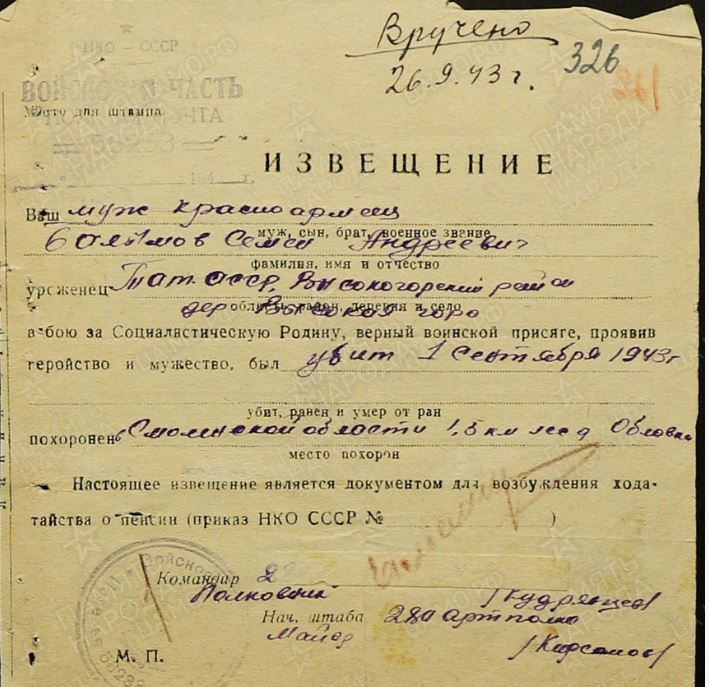 Вручено
26.9.43 г.
326
НКО — СССР
ВОЙСКОВАЯ ЧАСТЬ
Место для штампа
194 г.
ИЗВЕЩЕНИЕ
Ваш муж красноармеец
муж, сын, брат, военное звание
Семен Андреевич
фамилия, имя и отчество
уроженец Тат. АССР, Высокогорский район
область, район, деревня и село
дер. Высокая гора
в бою за Социалистическую Родину, верный воинской присяге, проявив
геройство и мужество, был убит 1 сентября 1943 г
убит, ранен и умер от ран
похоронен Смоленской области 1,5 км
место похорон
Настоящее извещение является документом для возбуждения хода-
тайства о пенсии (приказ НКО СССР № )
Командир
Полковник /Кудрявцев/
Нач. штаба 280 артполка
Майор
М. П.